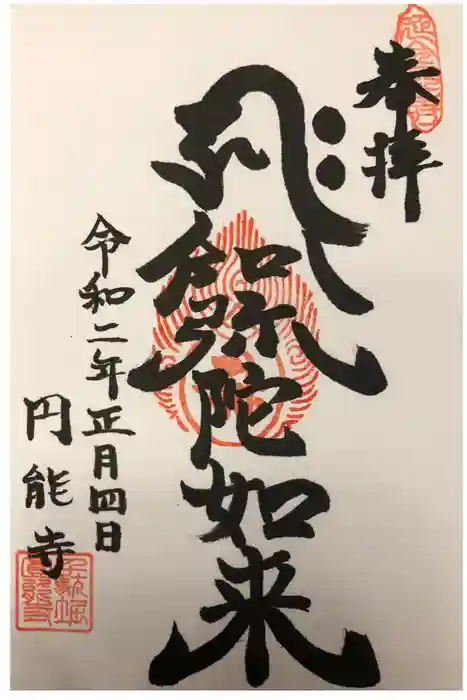 奉拝
𑖮𑖿𑖨𑖱𑖾
阿弥陀如来
令和二年正月四日
円能寺